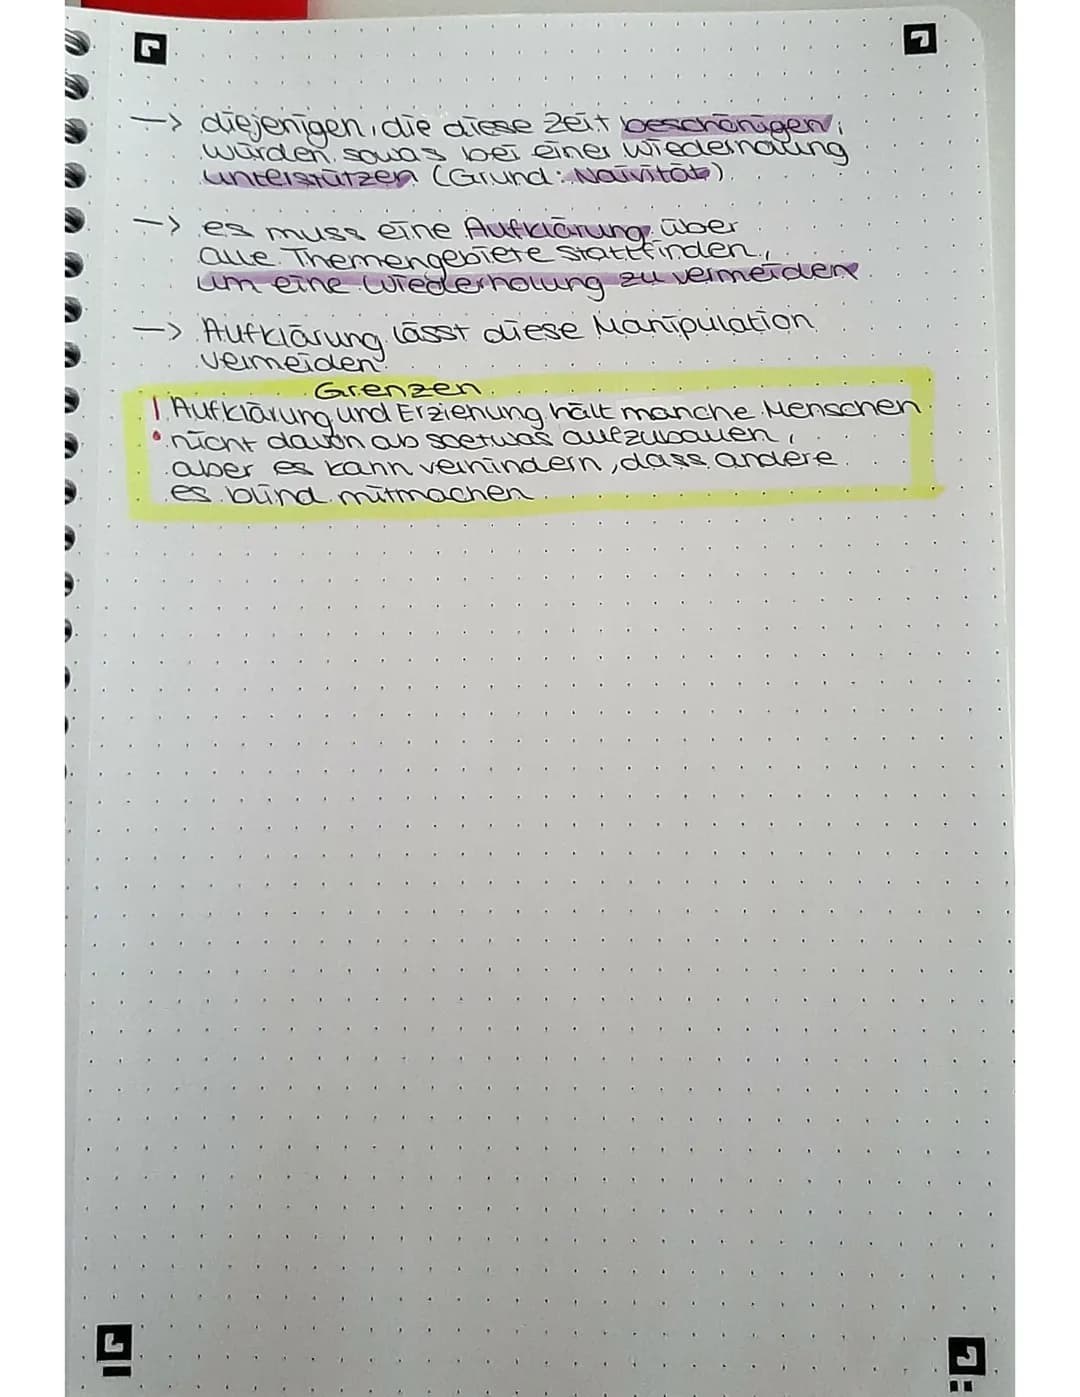 —> diejenigen, die diese Zeit beschönigen,
würden sowas bei einer Wiederholung
unterstützen (Grund: Naivität)
—> es muss eine Aufklärung über
alle Themengebiete stattfinden,
um eine Wiederholung zu vermeiden
—> Aufklärung lässt diese Manipulation
vermeiden
Grenzen
! Aufklärung und Erziehung hält manche Menschen
nicht davon ab soetwas aufzubauen,
aber es kann verhindern, dass andere
es blind mitmachen